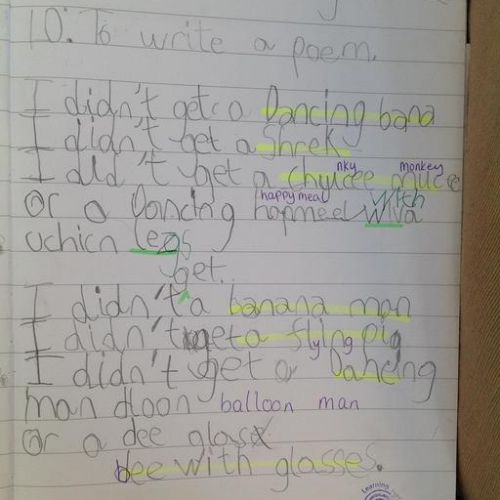 LO: To write a poem.
I didn't get a Dancing bana
I didn't get a Shrek
nky monkey
I did't get a
happy meal with
or a Dancing hapmeel wiva
uchicn legs
get.
I didn't a banana man
I didn't get a flying pig
I didn't get a Dancing
man dloon balloon man
or a dee glass
bee with glasses.
Learning